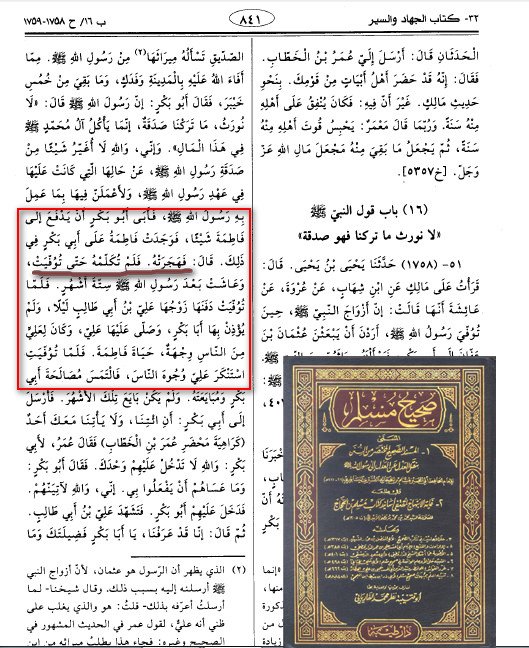 ٣٢- كتاب الجهاد والسير
٨٤١
ب ١٦/ ح ١٧٥٨-١٧٥٩
الْحَدَثَانِ قَالَ: أَرْسَلَ إِلَيَّ عُمَرُ بْنُ الْخَطَّابِ.
فَقَالَ: إِنَّهُ قَدْ حَضَرَ أَهْلُ أَبْيَاتٍ مِنْ قَوْمِكَ. بِنَحْوِ
حَدِيثِ مَالِكٍ. غَيْرَ أَنَّ فِيهِ: فَكَانَ يُنْفِقُ عَلَى أَهْلِهِ
مِنْهُ سَنَةً. وَرُبَّمَا قَالَ مَعْمَرٌ: يَحْبِسُ قُوتَ أَهْلِهِ مِنْهُ
سَنَةً، ثُمَّ يَجْعَلُ مَا بَقِيَ مِنْهُ مَجْعَلَ مَالِ اللهِ عَزَّ
وَجَلَّ. [خ٥٣٥٧]
(١٦) باب قول النبيّ ﷺ
«لا نورث ما تركنا فهو صدقة»
٥١- (١٧٥٨) حَدَّثَنَا يَحْيَى بْنُ يَحْيَى. قَالَ:
قَرَأْتُ عَلَى مَالِكٍ عَنِ ابْنِ شِهَابٍ، عَنْ عُرْوَةَ، عَنْ
عَائِشَةَ أَنَّهَا قَالَتْ: إِنَّ أَزْوَاجَ النَّبِيِّ ﷺ، حِينَ
تُوُفِّيَ رَسُولُ اللهِ ﷺ، أَرَدْنَ أَنْ يَبْعَثْنَ عُثْمَانَ بْنَ
الصِّدِّيقِ تَسْأَلُهُ مِيرَاثَهَا(٢) مِنْ رَسُولِ اللهِ ﷺ. مِمَّا
أَفَاءَ اللهُ عَلَيْهِ بِالْمَدِينَةِ وَفَدَكٍ، وَمَا بَقِيَ مِنْ خُمُسِ
خَيْبَرَ، فَقَالَ أَبُو بَكْرٍ: إِنَّ رَسُولَ اللهِ ﷺ قَالَ: «لَا
نُورَثُ، مَا تَرَكْنَا صَدَقَةٌ، إِنَّمَا يَأْكُلُ آلُ مُحَمَّدٍ ﷺ
فِي هَذَا الْمَالِ». وَإِنِّي، وَاللهِ لَا أُغَيِّرُ شَيْئًا مِنْ
صَدَقَةِ رَسُولِ اللهِ ﷺ، عَنْ حَالِهَا الَّتِي كَانَتْ عَلَيْهَا
فِي عَهْدِ رَسُولِ اللهِ ﷺ، وَلَأَعْمَلَنَّ فِيهَا بِمَا عَمِلَ
بِهِ رَسُولُ اللهِ ﷺ، فَأَبَى أَبُو بَكْرٍ أَنْ يَدْفَعَ إِلَى
فَاطِمَةَ شَيْئًا، فَوَجَدَتْ فَاطِمَةُ عَلَى أَبِي بَكْرٍ فِي
ذَلِكَ. قَالَ: فَهَجَرَتْهُ. فَلَمْ تُكَلِّمْهُ حَتَّى تُوُفِّيَتْ،
وَعَاشَتْ بَعْدَ رَسُولِ اللهِ ﷺ سِتَّةَ أَشْهُرٍ. فَلَمَّا
تُوُفِّيَتْ دَفَنَهَا زَوْجُهَا عَلِيُّ بْنُ أَبِي طَالِبٍ لَيْلًا، وَلَمْ
يُؤْذِنْ بِهَا أَبَا بَكْرٍ، وَصَلَّى عَلَيْهَا عَلِيٌّ، وَكَانَ لِعَلِيٍّ
مِنَ النَّاسِ وِجْهَةٌ، حَيَاةَ فَاطِمَةَ. فَلَمَّا تُوُفِّيَتِ
اسْتَنْكَرَ عَلِيٌّ وُجُوهَ النَّاسِ، فَالْتَمَسَ مُصَالَحَةَ أَبِي
بَكْرٍ وَمُبَايَعَتَهُ. وَلَمْ يَكُنْ بَايَعَ تِلْكَ الْأَشْهُرَ. فَأَرْسَلَ
إِلَى أَبِي بَكْرٍ: أَنِ ائْتِنَا، وَلَا يَأْتِنَا مَعَكَ أَحَدٌ
(كَرَاهِيَةَ مَحْضَرِ عُمَرَ بْنِ الْخَطَّابِ) فَقَالَ عُمَرُ، لِأَبِي
بَكْرٍ: وَاللهِ لَا تَدْخُلْ عَلَيْهِمْ وَحْدَكَ. فَقَالَ أَبُو بَكْرٍ:
وَمَا عَسَاهُمْ أَنْ يَفْعَلُوا بِي. إِنِّي، وَاللهِ لَآتِيَنَّهُمْ.
فَدَخَلَ عَلَيْهِمْ أَبُو بَكْرٍ. فَتَشَهَّدَ عَلِيُّ بْنُ أَبِي طَالِبٍ.
ثُمَّ قَالَ: إِنَّا قَدْ عَرَفْنَا، يَا أَبَا بَكْرٍ فَضِيلَتَكَ وَمَا
(٢) الذي يظهر أن الرسول هو عثمان، لأنَّ أزواج النبي
ﷺ أرسلنه إليه بسبب ذلك. وقال شيخنا - لما
سألتُ أعرفه بذلك- قلتُ: هو والذي يغلب على
ظني أنه عليٌّ، لقول عمر في الحديث المشهور في
الصحيح وغيره: فجاء هذا يطلبُ ميراثه من ابن
صحيح مسلم
دار طيبة